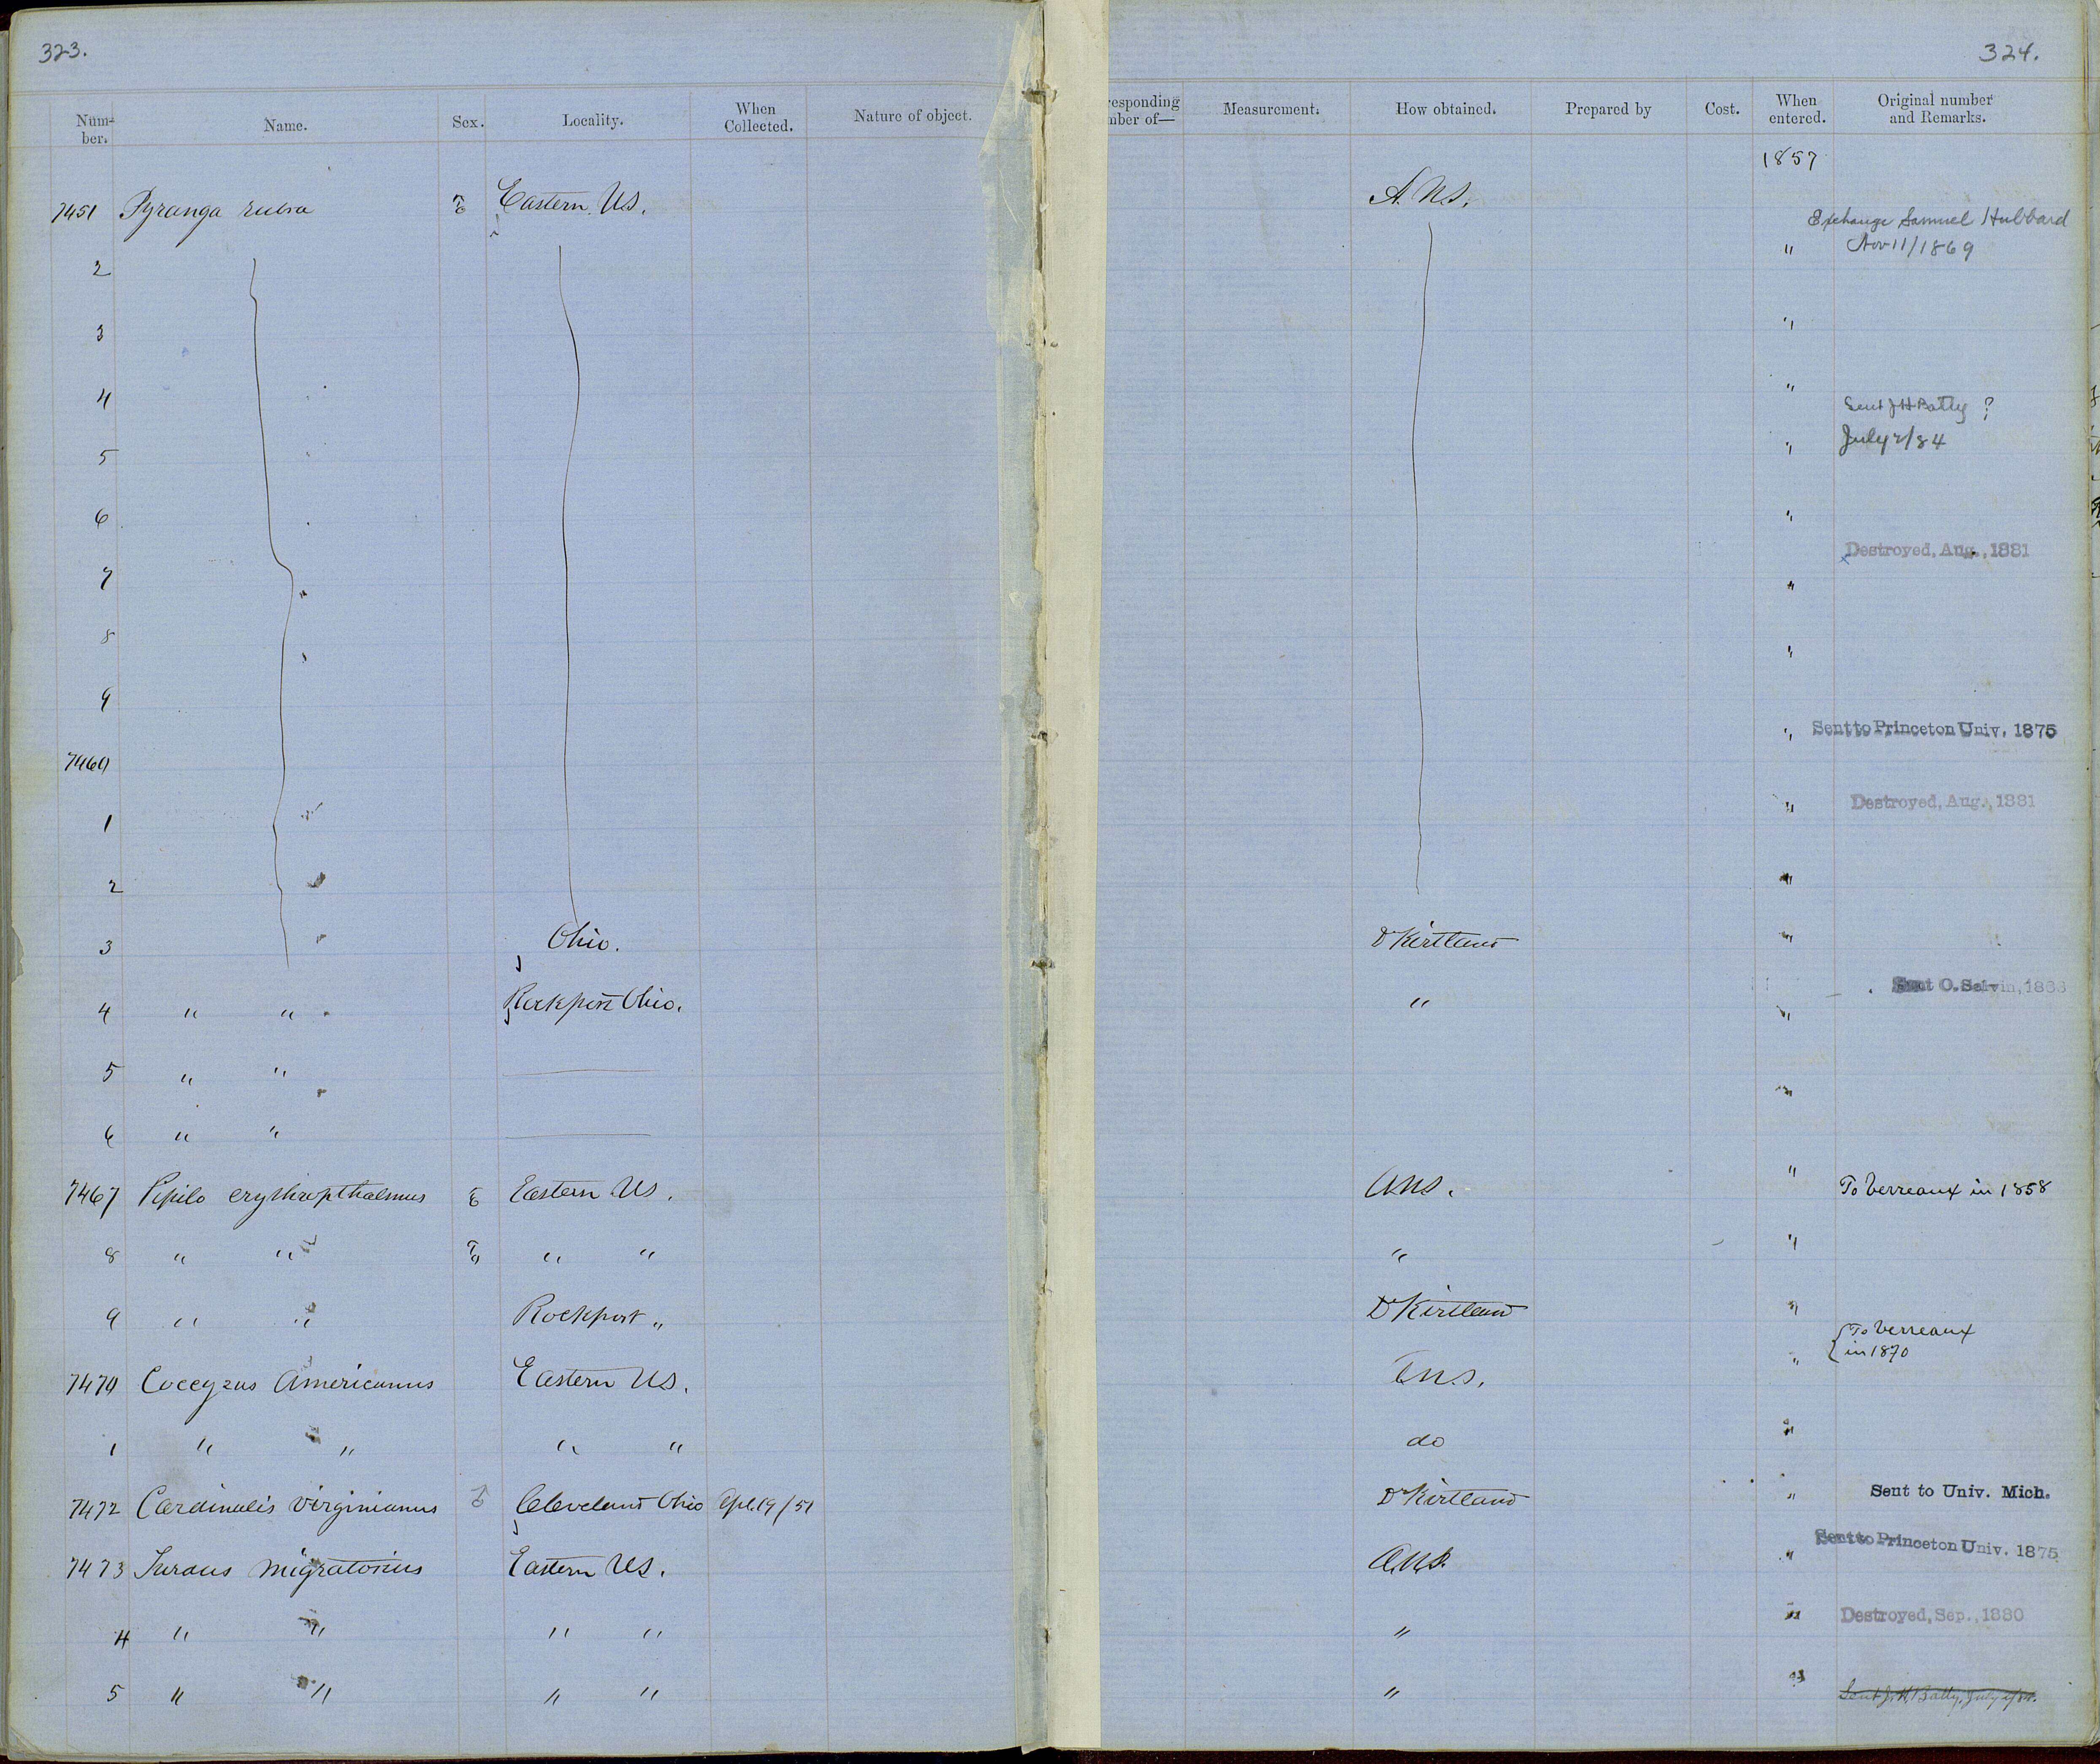 323.
324.
Num-
ber.
Name.
Sex.
Locality.
When
Collected.
Nature of object.
responding
mber of—
Measurement.
How obtained.
Prepared by
Cost.
When
entered.
Original number
and Remarks.
1857
7451 Pyranga rubra Eastern U.S. A.N.S.
Exchange Samuel Hubbard
2 " Nov 11/1869
3 "
4 "
Sent J H Batty ?
5 " July 2/84
6 "
Destroyed, Aug., 1881
7 "
8 "
9
" Sent to Princeton Univ. 1875
7460
1 " Destroyed, Aug., 1881
2 "
3 Ohio. Dr Kirtland "
Sent O. Salvin, 1868
4 " " Rockport Ohio. " "
5 " " "
6 " "
7467 Pipilo erythropthalmus Eastern US. ANS. " To Verreaux in 1858
8 " " " " " "
9 " " Rockport " Dr Kirtland "
To Verreaux
in 1870
7470 Coccyzus Americanus Eastern US. ANS. "
1 " " " " do "
7472 Cardinalis virginianus ♂ Cleveland Ohio Apl. 19/51 Dr Kirtland " Sent to Univ. Mich.
7473 Turdus migratorius Eastern US. ANS. " Sent to Princeton Univ. 1875
4 " " " " " " Destroyed, Sep., 1880
5 " " " " " " Sent J. H. Batty, July 2/84.